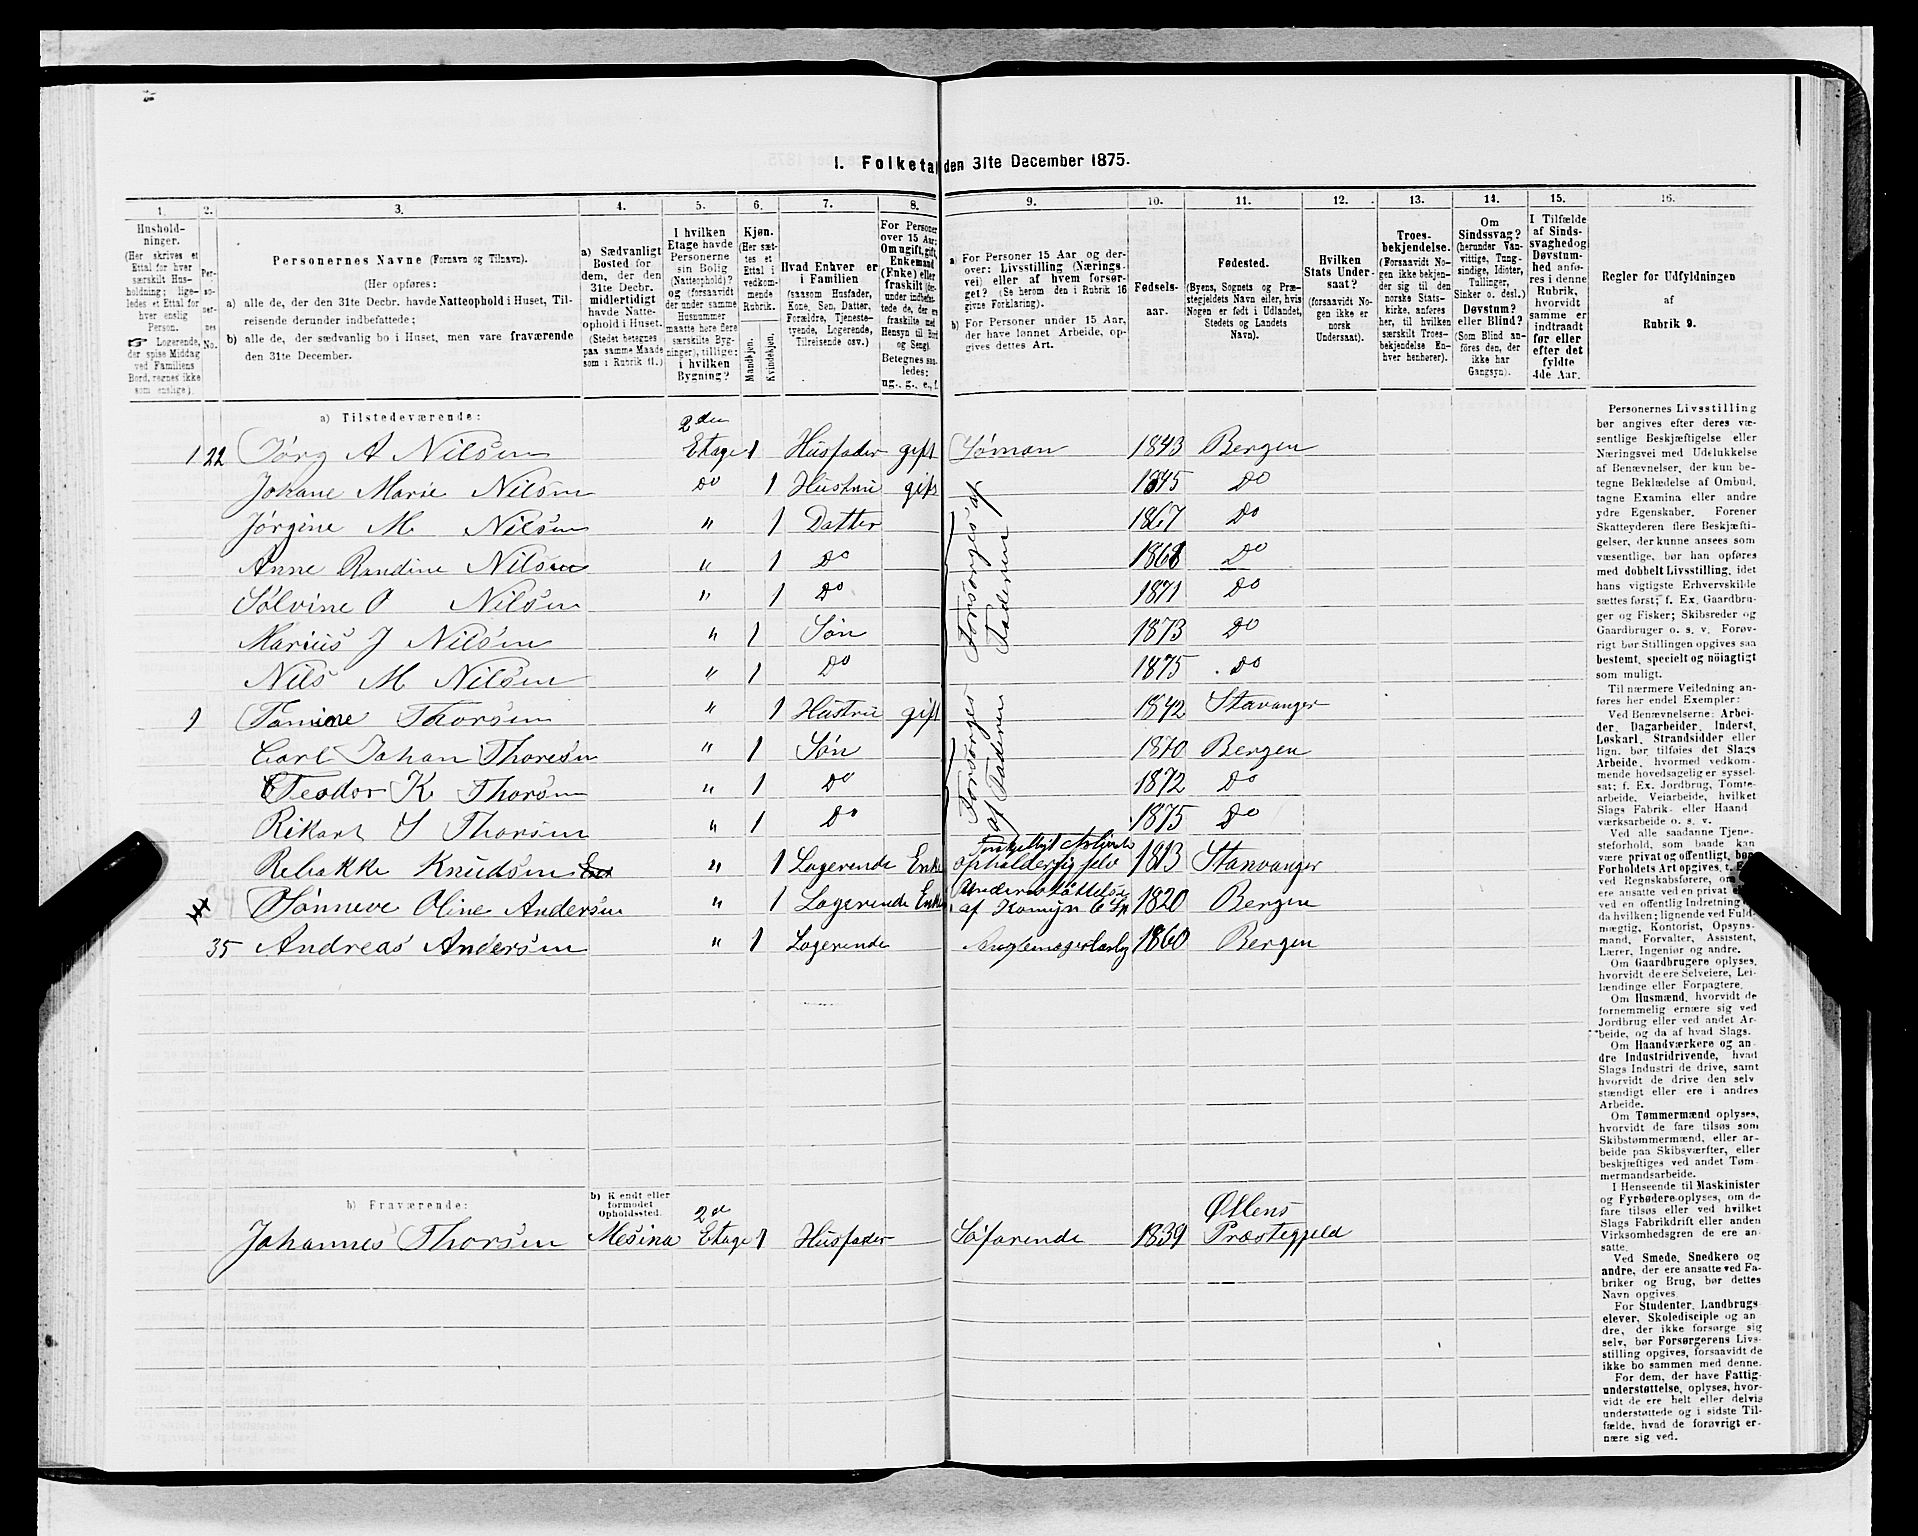 I. Folketal den 31te December 1875.
1. 2. 3. 4. 5. 6. 7. 8. 9. 10. 11. 12. 13. 14. 15. 16.
Hushold-
ninger.
(Her skrives et
Ettal for hver
særskilt Hus-
holdning; lige-
ledes et Ettal for
hver enslig
Person.
☞ Logerende,
der spise Middag
ved Familiens
Bord, regnes ikke
som enslige).
Per-
so-
ner-
nes
No.
Personernes Navne (Fornavn og Tilnavn).
(Her opføres:
a) alle de, der den 31te Decbr. havde Natteophold i Huset, Til-
reisende derunder indbefattede;
b) alle de, der sædvanlig bo i Huset, men vare fraværende
den 31te December.
a) Sædvanligt
Bosted for
dem, der den
31te Decbr.
midlertidigt
havde Natte-
ophold i Huset.
(Stedet betegnes
paa samme Maade
som i Rubrik 11.)
I hvilken
Etage havde
Personerne
sin Bolig
(Natteophold)?
og (forsaavidt
der under samme
Husnummer
maatte høre flere
særskilte Byg-
ninger), tillige:
i hvilken
Bygning?
Kjøn.
(Her sæt-
tes et
Ettal i
vedkom-
mende
Rubrik.
Mandkjøn.
Kvindekjøn.
Hvad Enhver er
i Familien
(saasom Husfader,
Kone, Søn, Datter,
Forældre, Tjeneste-
tyende, Logerende,
Tilreisende osv.)
For Personer
over 15 Aar:
Om ugift, gift,
Enkemand
(Enke) eller
fraskilt (der-
under indbefat-
tede de, der ere
fraskilte med
Hensyn til Bord
og Seng).
Betegnes saa-
ledes:
ug., g., e., f.
a) For Personer 15 Aar og der-
over: Livsstilling (Nærings-
vei) eller af hvem forsør-
get? (Se herom den i Rubrik 16
givne Forklaring).
b) For Personer under 15 Aar,
der have lønnet Arbeide, op-
gives dettes Art.
Fødsels-
aar.
Fødested.
(Byens, Sognets og Præ-
stegjeldets Navn eller, hvis
Nogen er født i Udlandet,
Stedets og Landets
Navn).
Hvilken
Stats Under-
saat?
(forsaavidt No-
gen ikke er
norsk
Undersaat).
Troes-
bekjendelse.
(Forsaavidt No-
gen ikke bekjen-
der sig til den
norske Stats-
kirke, anføres
her, til hvilken
særskilt Troes-
bekjendelse En-
hver henhører).
Om
Sindssvag?
(herunder Van-
vittige, Tung-
sindige, Idioter,
Tullinger,
Sinker o. desl.)
Døvstum?
eller Blind?
(Som Blind an-
føres den, der
ikke har
Gangsyn).
I Tilfælde
af Sinds-
svaghed og
Døvstum-
hed anfø-
res i denne
Rubrik,
hvorvidt
samme er
indtraadt
før eller
efter det
fyldte
4de Aar.
Regler for Udfyldningen
af
Rubrik 9.
a) Tilstedeværende:
2den
1 22 Jørg A Nilsen Etage 1 Husfader gift Søman 1843 Bergen
Johane Marie Nilsen Do 1 Hustru gift 1845 Do
Jørgine M Nilsen " 1 Datter 1867 Do
Anne Randine Nilsen " 1 Do 1868 Do
Sølvine O Nilsen " 1 Do 1871 Do
Marius J Nilsen " 1 Søn 1873 Do
Nils M Nilsen " 1 Do 1875 Do
Forsørges af
Faderen
1 Tomine Thorsen " 1 Hustru gift 1842 Stavanger
Carl Johan Thorsen " 1 Søn 1870 Bergen
Teodor K Thorsen " 1 Do 1872 Do
Rikart S Thorsen " 1 Do 1875 Do
Forsørges
af Faderen
Rebakke Knudsen " 1 Logerende Enke opholder sig selv 1813 Stanvanger
Sønneve Oline Andersen " 1 Logerende Enke af 1820 Bergen
35 Andreas Andersen " 1 Logerende 1860 Bergen
b) Fraværende:
b) Kjendt eller
formodet
Opholdssted.
2de Øllens
Johannes Thorsen Mesina Etage 1 Husfader Søfarende 1839 Præstegjeld
Personernes Livsstilling
bør angives efter deres væ-
sentlige Beskjæftigelse eller
Næringsvei med Udelukkelse
af Benævnelser, der kun be-
tegne Beklædelse af Ombud,
tagne Examina eller andre
ydre Egenskaber. Forener
Skatteyderen flere Beskjæfti-
gelser, der kunne ansees som
væsentlige, bør han opføres
med dobbelt Livsstilling, idet
hans vigtigste Erhvervskilde
sættes først; f. Ex. Gaardbru-
ger og Fisker; Skibsreder og
Gaardbruger o. s. v. Forøv-
rigt bør Stillingen opgives saa
bestemt, specielt og nöiagtigt
som muligt.
Til nærmere Veiledning an-
føres her endel Exempler:
Ved Benævnelserne: Arbei-
der, Dagarbeider, Inderst,
Løskarl, Strandsidder eller
lign. bør tilføies det Slags
Arbeide, hvormed vedkom-
mende hovedsagelig er syssel-
sat; f. Ex. Jordbrug, Tomte-
arbeide, Veiarbeide, hvilket
Slags Fabrik- eller Haand-
værksarbeide o. s. v.
Ved alle saadanne Tjene-
steforhold, som baade kan
være privat og offentlig, bør
Forholdets Art opgives,
ved Regnskabsførere, om
ere ansatte ved en privat
ved en offentlig Indretning
da hvilken; lignende ved Fuld-
mægtig, Kontorist, Opsyns-
mand, Forvalter, Assistent,
Lærer, Ingeniør og andre.
Om Gaardbrugere oplyses,
hvorvidt de ere Selveiere, Lei-
lændinge eller Forpagtere.
Om Husmænd, hvorvidt de
fornemmelig ernære sig ved
Jordbrug eller ved andet Ar-
beide, og da af hvad Slags.
Om Haandværkere og an-
dre Industridrivende, hvad
Slags Industri de drive, samt
hvorvidt de drive den selv-
stændigt eller ere i andres
Arbeide.
Om Tømmermænd oplyses,
hvorvidt de fare tilsøs som
Skibstømmermænd, eller ar-
beide paa Skibsværfter, eller
beskjæftiges ved andet Tøm-
mermandsarbeide.
I Henseende til Maskinister
og Fyrbødere oplyses, om de
fare tilsøs eller ved hvilket
Slags Fabrikdrift eller anden
Virksomhedsgren de ere an-
satte.
Ved Smede, Snedkere og
andre, der ere ansatte ved Fa-
briker og Brug, bør dettes
Navn opgives.
For Studenter, Landbrugs-
elever, Skoledisciple og an-
dre, der ikke forsørge sig
selv, bør Forsørgerens Livs-
stilling opgives, forsaavidt de
ikke bo sammen med denne.
For dem, der have Fattig-
understøttelse, oplyses, hvor-
vidt de ere helt eller delvis
understøttede og i sidste Til-
fælde, hvad de forøvrigt er-
nære sig ved.